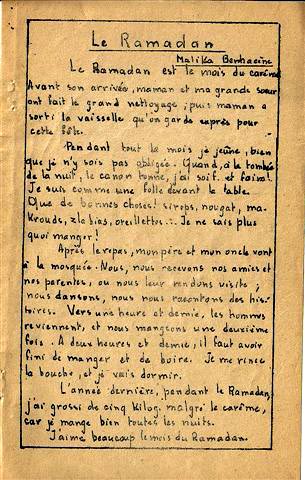 Le Ramadan
Malika Benhacine
Le Ramadan est le mois du carême
Avant son arrivée, maman et ma grande sœur
ont fait le grand nettoyage ; puis maman a
sorti la vaisselle qu'on garde exprès pour
cette fête.
Pendant tout le mois je jeûne, bien
que je n'y sois pas obligée. Quand, à la tombée
de la nuit, le canon tonne, j'ai soif et faim.
Je suis comme une folle devant la table.
Que de bonnes choses ! sirops, nougat, ma-
krouds, zlabias, oreillettes... Je ne sais plus
quoi manger !
Après le repas, mon père et mon oncle vont
à la mosquée. Nous, nous recevons nos amies et
nos parentes, ou nous leur rendons visite ;
nous dansons, nous nous racontons des his-
toires. Vers une heure et demie, les hommes
reviennent, et nous mangeons une deuxième
fois. A deux heures et demie, il faut avoir
fini de manger et de boire. Je me rince
la bouche, et je vais dormir.
L'année dernière, pendant le Ramadan,
j'ai grossi de cinq kilog. malgré le carême,
car je mange bien toutes les nuits.
J'aime beaucoup le mois du Ramadan.